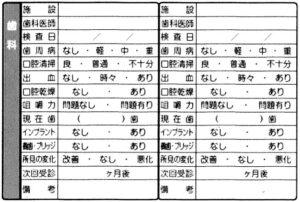 歯科
施設
歯科医師
検査日 ／ ／
歯周病 なし・軽・中・重
口腔清掃 良・普通・不十分
出血 なし・時々・あり
口腔乾燥 なし・あり
咀嚼力 問題なし・問題有り
現在歯 ( )歯
インプラント なし・あり
義歯・ブリッジ なし・あり
所見の変化 改善・なし・悪化
次回受診 ヶ月後
備考
施設
歯科医師
検査日 ／ ／
歯周病 なし・軽・中・重
口腔清掃 良・普通・不十分
出血 なし・時々・あり
口腔乾燥 なし・あり
咀嚼力 問題なし・問題有り
現在歯 ( )歯
インプラント なし・あり
義歯・ブリッジ なし・あり
所見の変化 改善・なし・悪化
次回受診 ヶ月後
備考